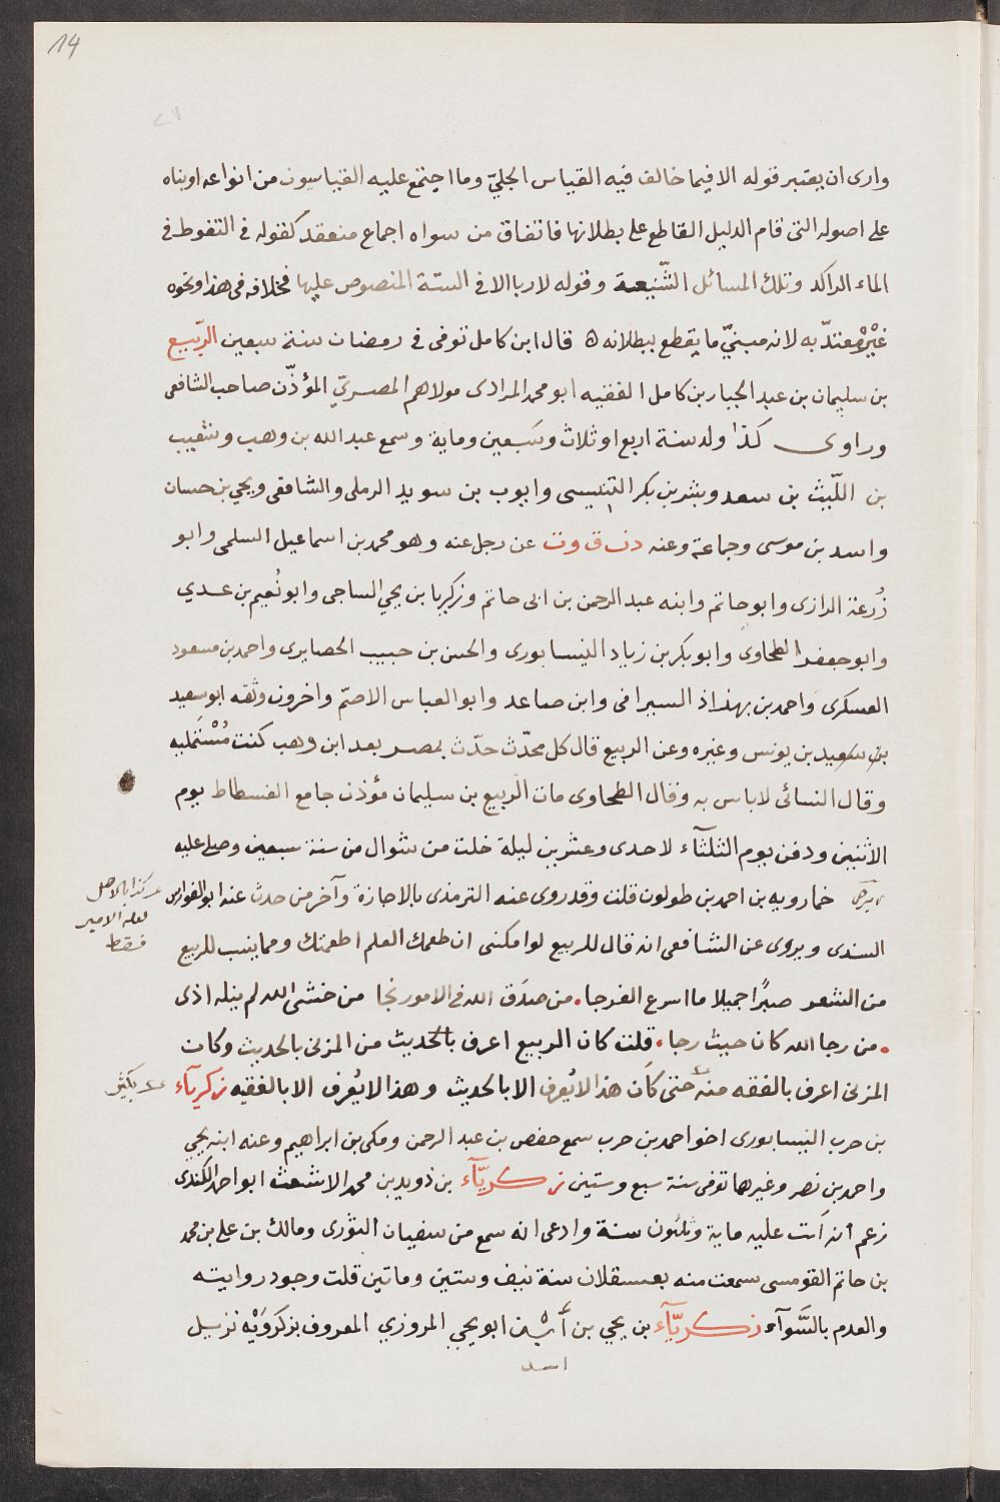 14
وارى ان يعتبر قوله الا فيما خالف فيه القياس الجليّ وما اجتمع عليه القياسون من انواعه او بناه
على اصوله التى قام الدليل القاطع على بطلانها فاتفاق من سواه اجماع منعقد كقوله فى التغوط فى
الماء الراكد وتلك المسائل الشَّنِيعة وقوله لا ربا الا فى الستة المنصوص عليها فخلافه فى هذا ونحوه
غَيْرُ مُعتدّ به لانه مبنيّ ما يقطع ببطلانه ه قال ابن كامل توفى فى رمضان سنة سبعين الرّبيع
بن سليمان بن عبد الجبار بن كامل الفقيه ابو محمد المرادى مولاهم المصريّ المؤذّن صاحب الشافعى
وراوى كذا ولد سنة اربع او ثلاث وسَبعين وماية وسمع عبد الله بن وهب وشعيب
بن اللّيث بن سعد وبشر بن بكر التنيسى وايوب بن سويد الرملى والشافعى ويحيى بن حسان
واسد بن موسى وجماعة وعنه د ن ق وت عن رجل عنه وهو محمد بن اسماعيل السلمى وابو
زُرعة الرازى وابو حاتم وابنه عبد الرحمن بن ابى حاتم وزكريا بن يحيى الساجى وابو نُعيم بن عدي
وابو جعفر الطحاوى وابو بكر بن زياد النيسابورى والحسن بن حبيب الحصايرى واحمد بن مسعود
العسكرى واحمد بن بهذاذ السيرافى وابن صاعد وابو العباس الاصمّ واخرون وثقه ابو سعيد
بن سعيد بن يونس وغيره وعن الربيع قال كل محدّث حدّث بمصر بعد ابن وهب كنت مُسْتَمليه
وقال النسائى لا باس به وقال الطحاوى مات الربيع بن سليمان مؤذن جامع الفسطاط يوم
الاثنين ودفن يوم الثلثآء لاحدى وعشرين ليلة خلت من شوال من سنة سبعين وصلى عليه
خمارويه بن احمد بن طولون قلت وقد روى عنه الترمذى بالاجازة وآخر من حدث عنه ابو الفوارس
كذا بالاصل
لعله الامير
فقط
السندى ويروى عن الشافعى انه قال للربيع لو امكننى ان طعمك العلم اطعمتك ومما ينسب للربيع
من الشعر صبرًا جميلا ما اسرع الفرجا . من صدَق الله فى الامور نجا من خشى الله لم ينله اذى
. من رجا الله كان حيث رجا . قلت كان الربيع اعرف بالحديث من المزنى بالحديث وكان
المزنى اعرف بالفقه منه حتى كان هذا لا يُعرف الا بالحديث وهذا لا يُعرف الا بالفقيه زكريآء
بكثير
بن حرب النيسابورى اخو احمد بن حرب سمع حفص بن عبد الرحمن ومكى بن ابراهيم وعنه ابنه يحيى
واحمد بن نصر وغيرهما توفى سنة سبع وستين زكريّآء بن ذويد بن محمد الاشعث ابو احمد الكندى
زعم انه اتت عليه ماية وثلثون سنة وادعى انه سمع من سفيان الثورى ومالك بن على بن محمد
بن حاتم القومسى سمعت منه بعسقلان سنة نيف وستين وماتين قلت وجود روايته
والعدم بالسَّوآء زكريّآء بن يحيى بن أسد ابو يحيى المروزي المعروف بزكرَوَيْه نزيل
اسد